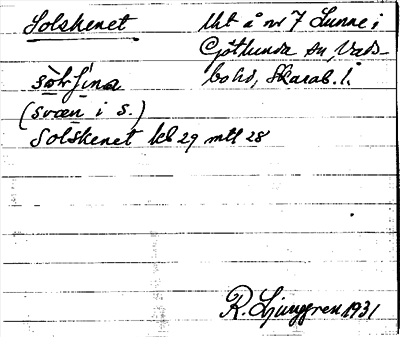 Solskenet
Ut å nr 7 Lunne i
Götlunda sn, Vads-
bo hd, Skarab. l.
(svæn i s.)
Solskenet kb 29 mtl 28
R. Ljunggren 1931